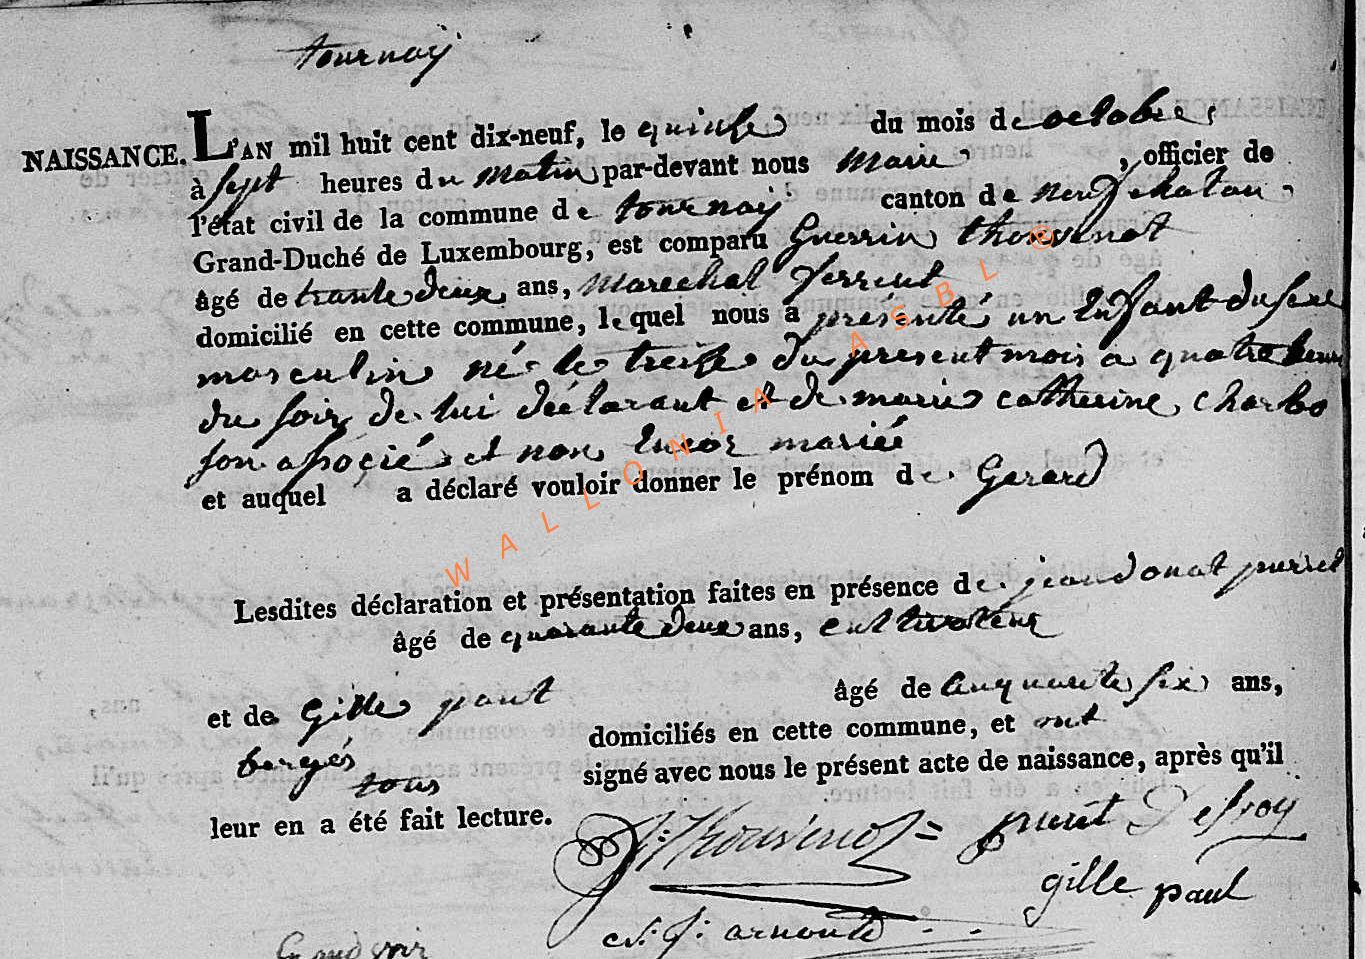 tournay
NAISSANCE. L'AN mil huit cent dix-neuf, le quinse du mois de octobre,
à sept heures du matin par-devant nous maire , officier de
l'état civil de la commune de tournay canton de neufchatau
Grand-Duché de Luxembourg, est comparu Guerrin thouvenot
âgé de trante deux ans, marechal ferrent
domicilié en cette commune, lequel nous a présenté un enfant du sexe
masculin né le treise du present mois a quatre heur
du soir de lui déclarant et de marie catherine charlo
son assoçié et non encor mariée
et auquel a déclaré vouloir donner le prénom de Gerard
Lesdites déclaration et présentation faites en présence de jean donat
âgé de quarante deux ans, cultivateur
et de Gille paul âgé de cinquante six ans,
bergés domiciliés en cette commune, et ont
tous signé avec nous le présent acte de naissance, après qu'il
leur en a été fait lecture.
G: Thouvenot
gille paul
arnould
WALLONIA ASBL ®